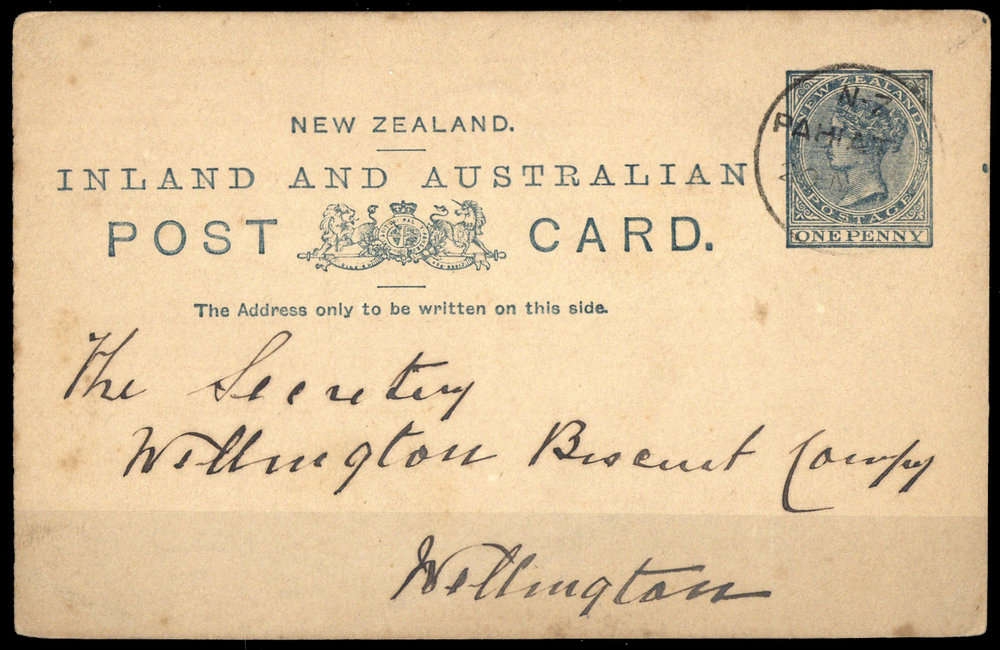 NEW ZEALAND.
INLAND AND AUSTRALIAN
POST CARD.
The Address only to be written on this side.
NEW ZEALAND
POSTAGE
ONE PENNY
N-Z
The Secretary
Wellington Biscuit Compy
Wellington